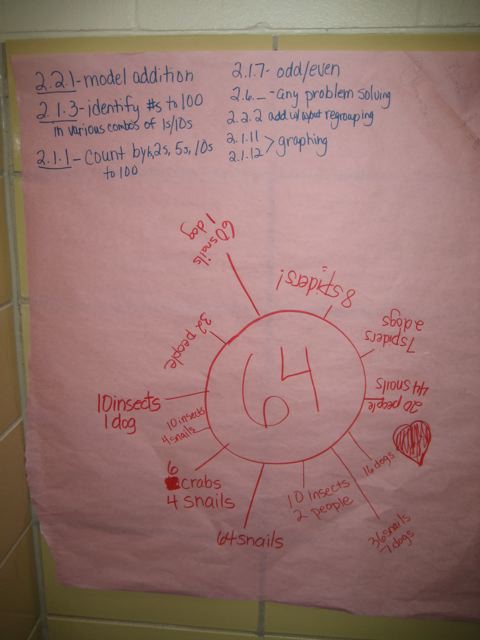 2.2.1-model addition
2.1.3-identify #s to 100
in various combos of 1s/10s
2.1.1-Count by 1s, 2s, 5s, 10s
to 100
2.1.7-odd/even
2.6._-any problem solving
2.2.2 add w/ w/out regrouping
2.1.11
2.1.12 > graphing
60 snails
1 dog
8 spiders!
7 spiders
2 dogs
44 snails
20 people
16 dogs
36 snails
7 dogs
10 insects
2 people
64 snails
6
crabs
4 snails
10 insects
4 snails
10 insects
1 dog
32 people
64